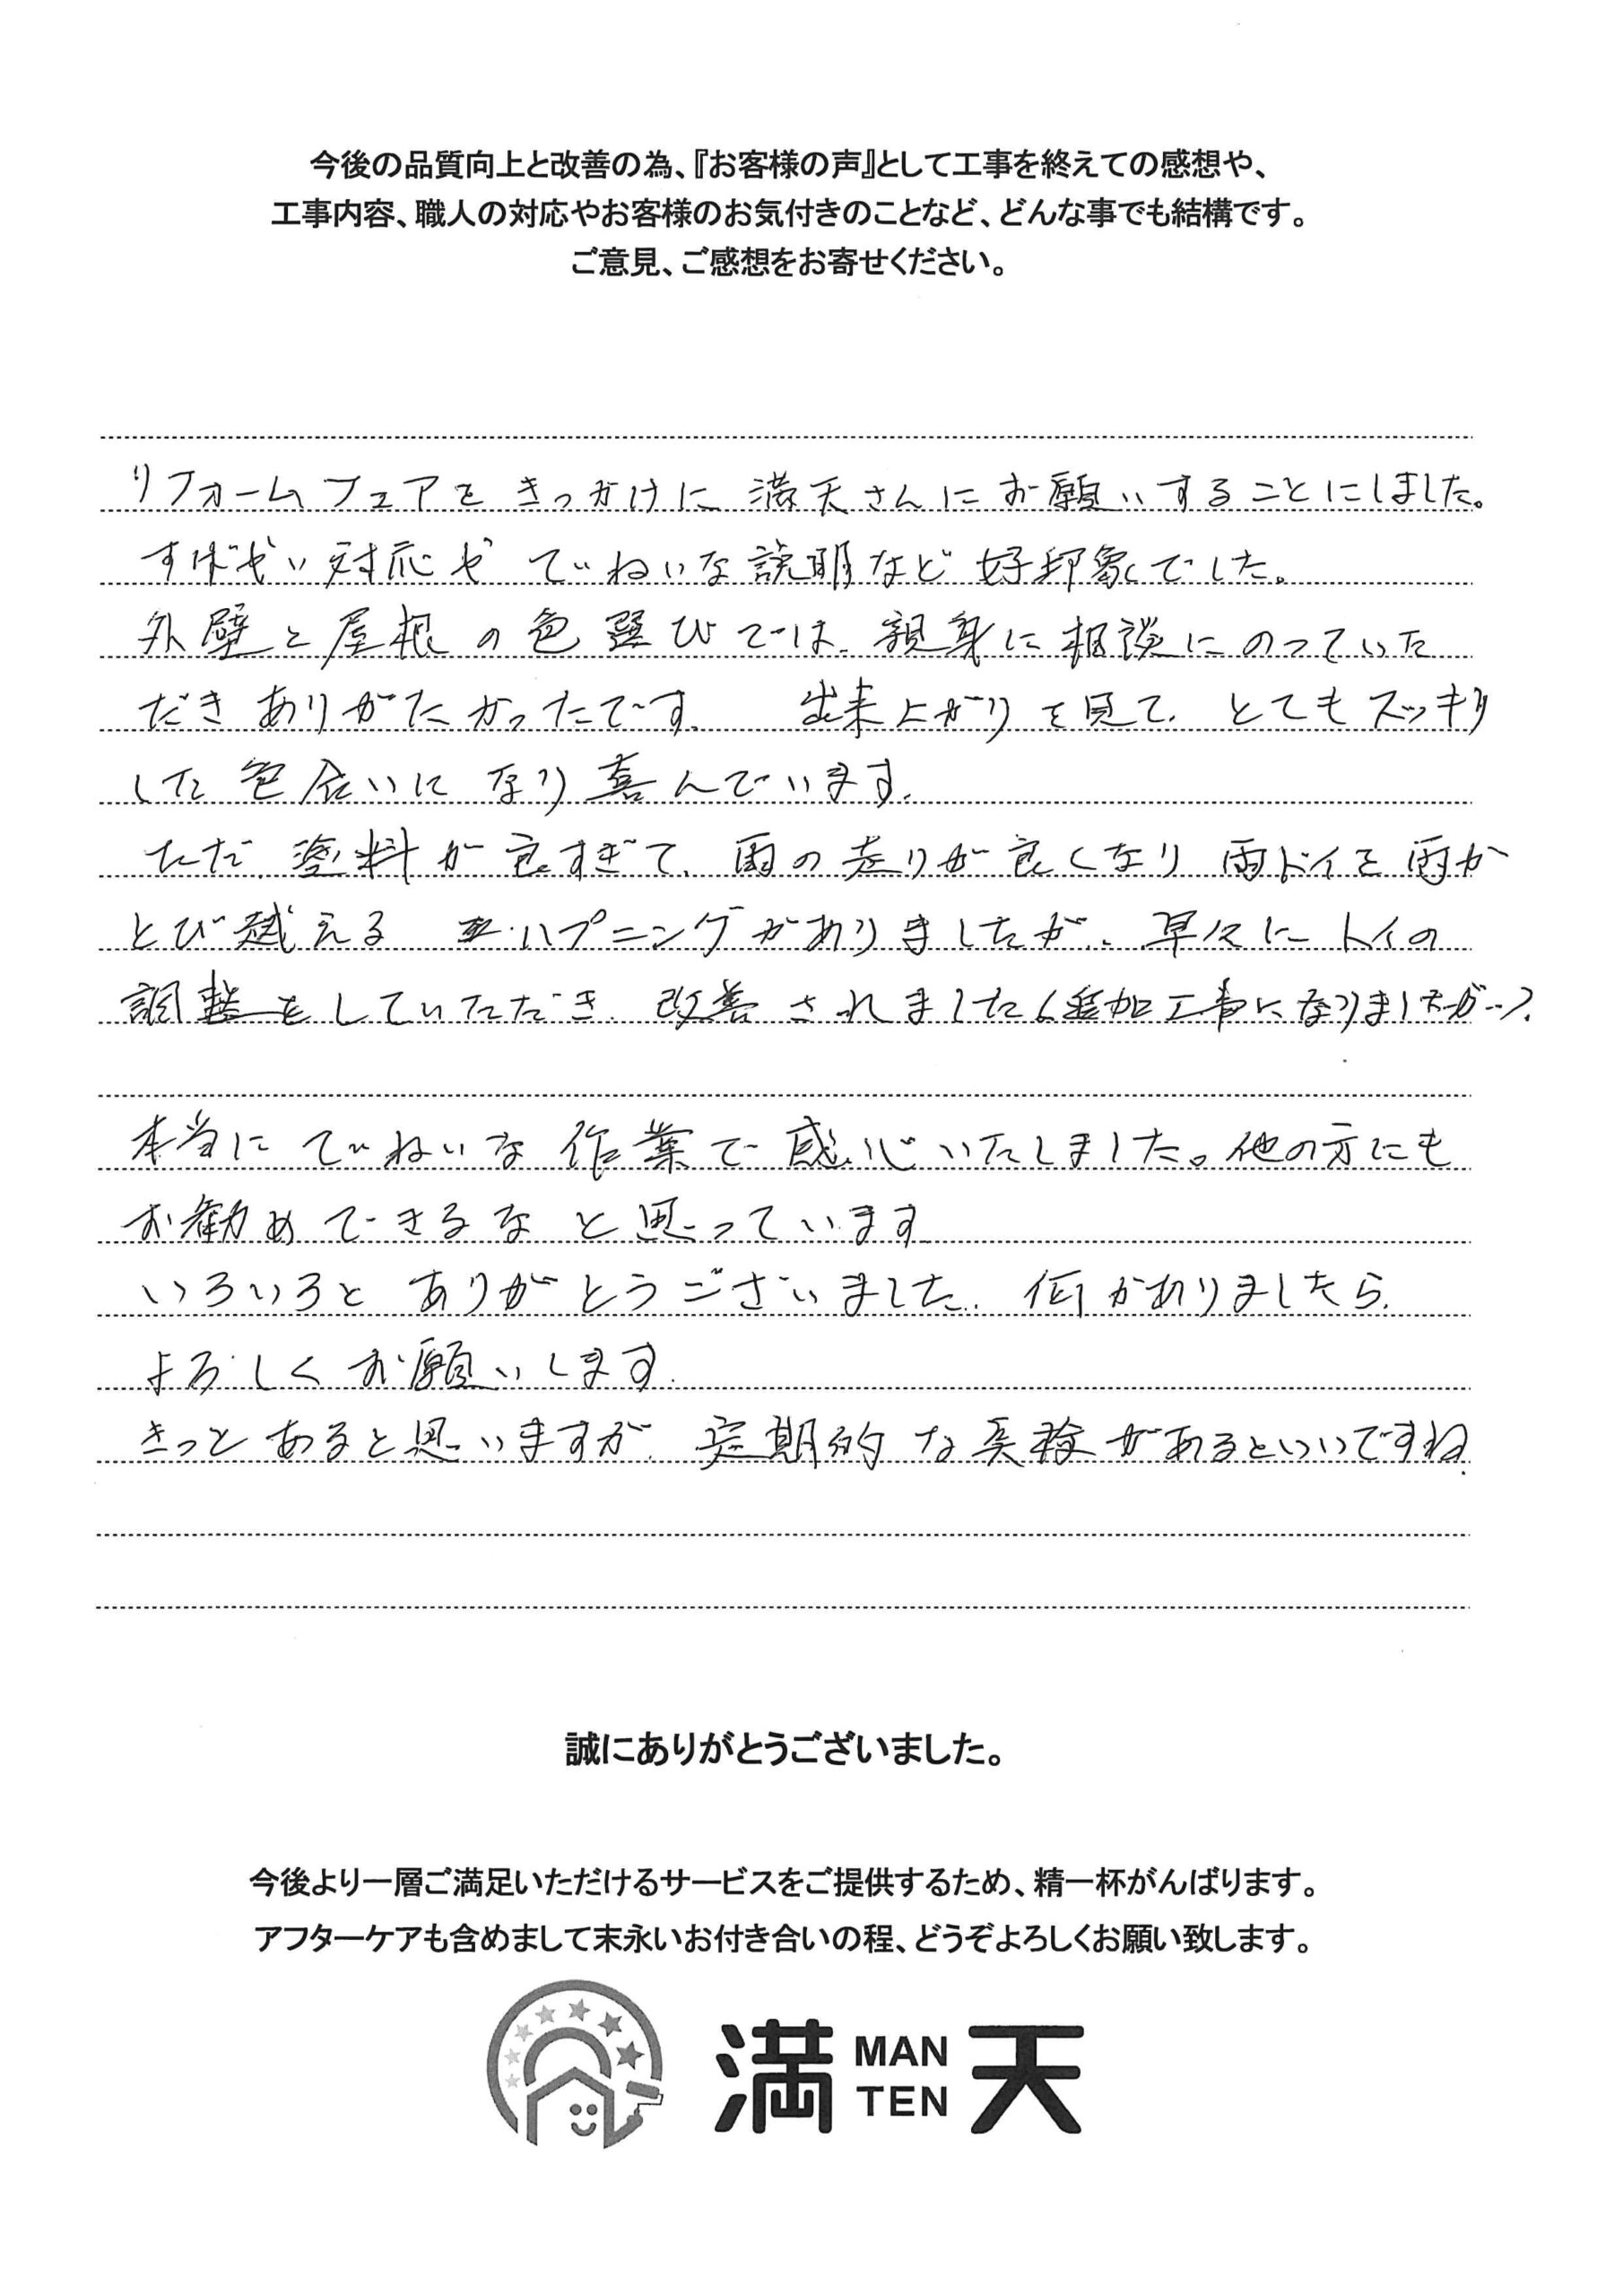 今後の品質向上と改善の為、『お客様の声』として工事を終えての感想や、
工事内容、職人の対応やお客様のお気付きのことなど、どんな事でも結構です。
ご意見、ご感想をお寄せください。
リフォームフェアをきっかけに満天さんにお願いすることにしました。
すばやい対応やていねいな説明など好印象でした。
外壁と屋根の色選びでは、親身に相談にのっていた
だきありがたかったです。出来上がりを見て、とてもスッキリ
した色合いになり喜んでいます。
ただ、塗料が良すぎて、雨の走りが良くなり雨ドイを雨が
とび越えるハプニングがありましたが、早々にトイの
調整をしていただき、改善されました(追加工事になりましたが…)。
本当にていねいな作業で感心いたしました。他の方にも
お勧めできるなと思っています。
いろいろとありがとうございました。何かありましたら、
よろしくお願いします。
きっとあると思いますが、定期的な点検があるといいですね。
誠にありがとうございました。
今後より一層ご満足いただけるサービスをご提供するため、精一杯がんばります。
アフターケアも含めまして末永いお付き合いの程、どうぞよろしくお願い致します。
満 MAN TEN 天